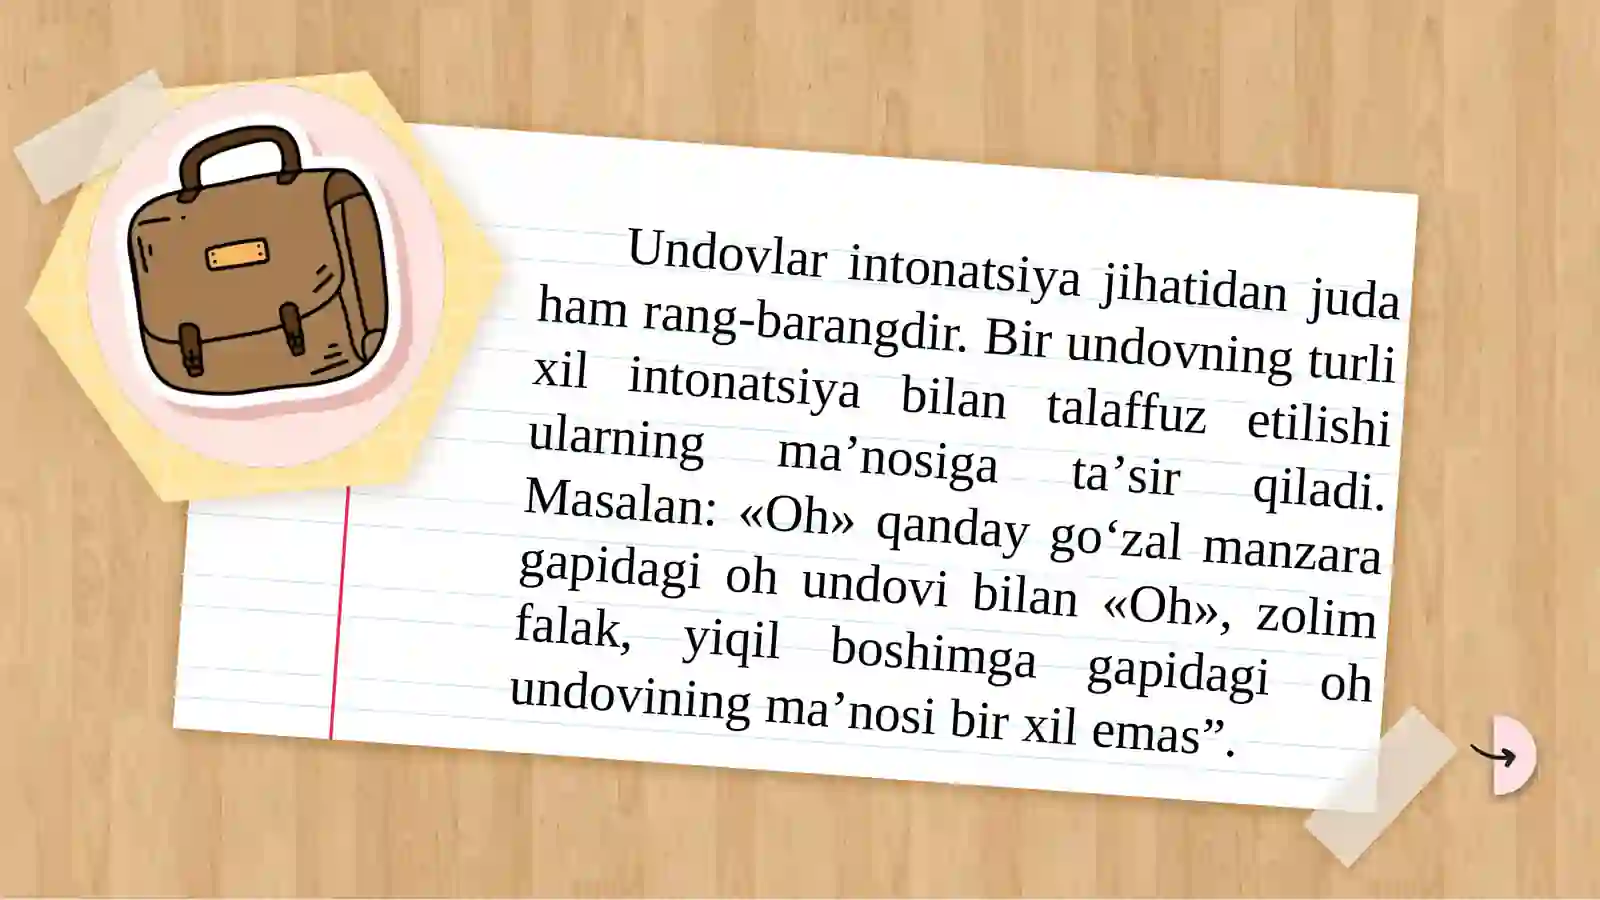 Undovlar intonatsiya jihatidan juda
ham rang-barangdir. Bir undovning turli
xil intonatsiya bilan talaffuz etilishi
ularning ma’nosiga ta’sir qiladi.
Masalan: «Oh» qanday go‘zal manzara
gapidagi oh undovi bilan «Oh», zolim
falak, yiqil boshimga gapidagi oh
undovining ma’nosi bir xil emas”.